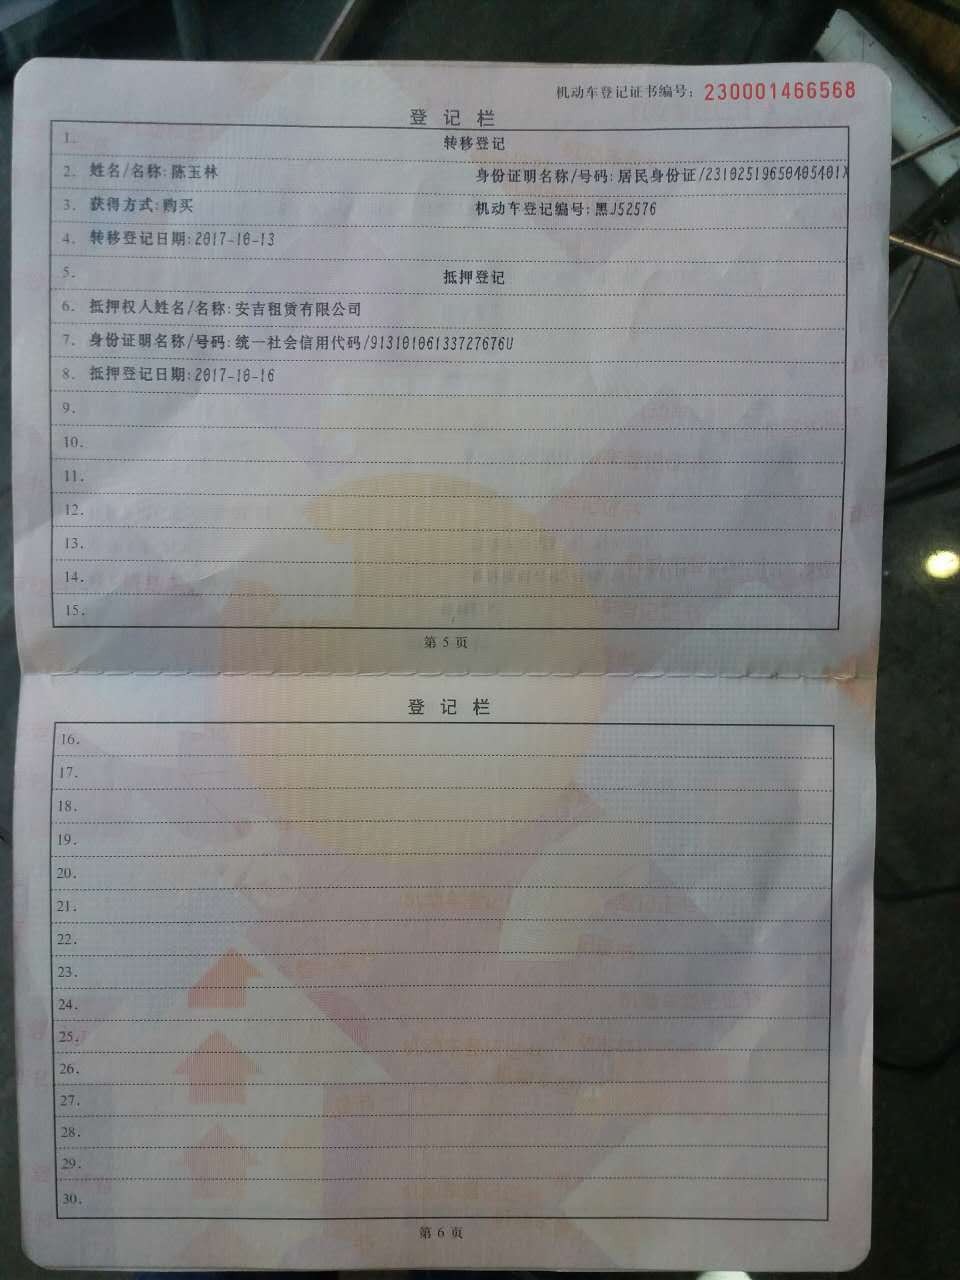 机动车登记证书编号: 230001466568
登记栏
1. 转移登记
2. 姓名/名称:陈玉林 身份证明名称/号码:居民身份证/23102519650405401X
3. 获得方式:购买 机动车登记编号:黑J52576
4. 转移登记日期:2017-10-13
5. 抵押登记
6. 抵押权人姓名/名称:安吉租赁有限公司
7. 身份证明名称/号码:统一社会信用代码/91310106133727676U
8. 抵押登记日期:2017-10-16
9.
10.
11.
12.
13.
14.
15.
第5页
登记栏
16.
17.
18.
19.
20.
21.
22.
23.
24.
25.
26.
27.
28.
29.
30.
第6页